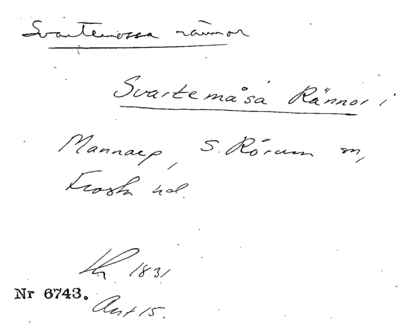 Svartemossa rännor
Svartemåsa Rännor i
Mannarp, S. Rörum sn,
Frosta hd.
1831
Nr 6743.
Akt 15.